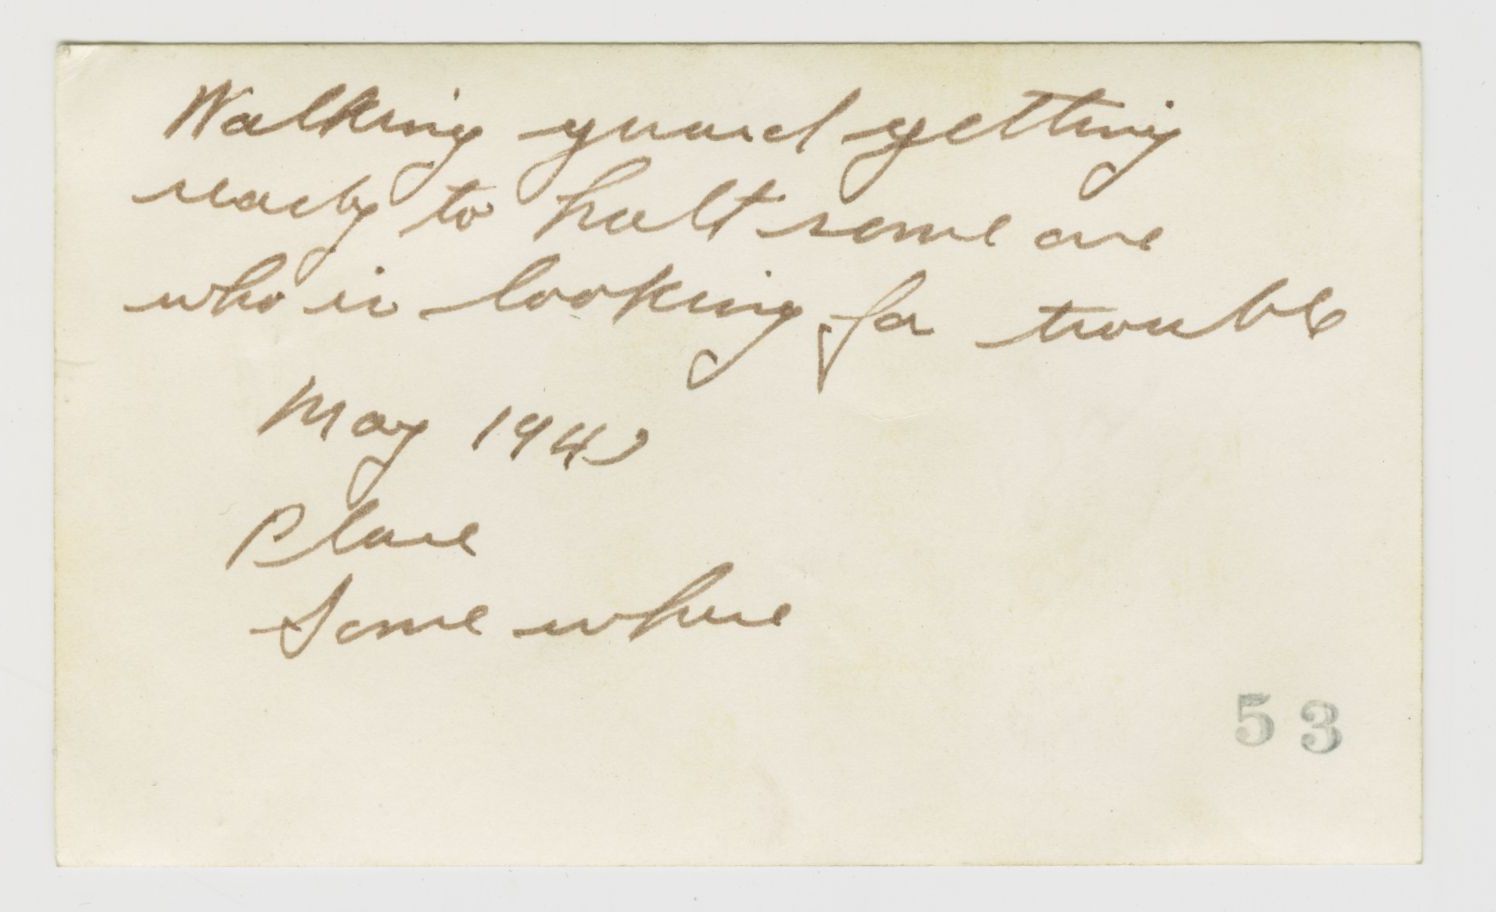 Walking guard getting
ready to halt some one
who is looking for trouble
May 1942
Place
Some where
53